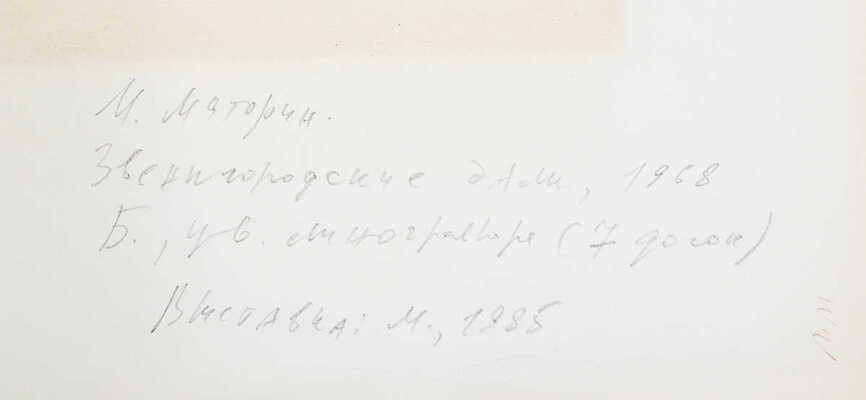 М. Маторин.
Звенигородские дали, 1968
Б., цв. линогравюра (7 досок)
Выставка: М., 1985